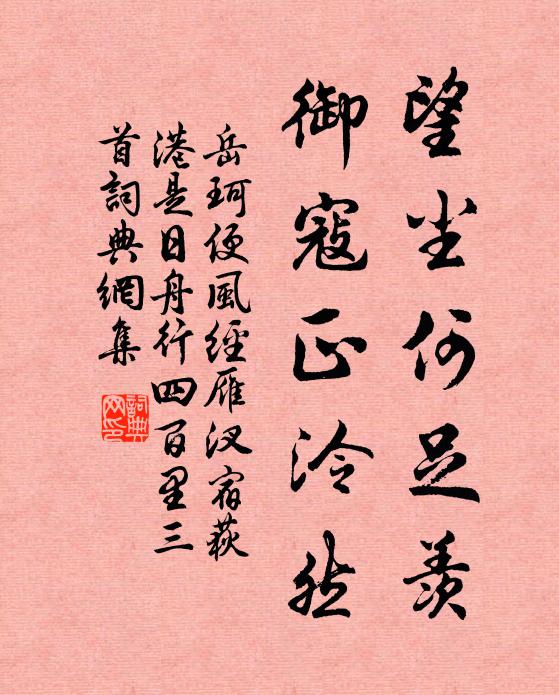 望尘何足羡
御寇正泠然
岳珂便風經雁汊宿荻
港是日舟行四百里三
首詞典網集
詞典网印